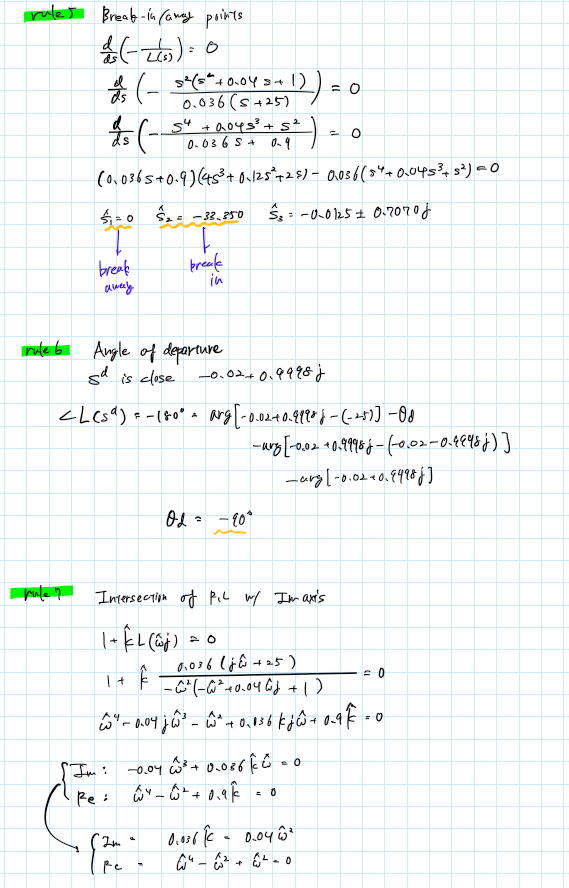 rule 5 Break-in/away points
d/ds (-1/L(s)) = 0
d/ds (- s²(s²+0.04s+1) / 0.036(s+25)) = 0
d/ds (- s⁴+0.04s³+s² / 0.036s+0.9) = 0
(0.036s+0.9)(4s³+0.12s²+2s) - 0.036(s⁴+0.04s³+s²) = 0
ŝ₁ = 0 ŝ₂ = -33.350 ŝ₃ = -0.0125 ± 0.7070j
break away
break in
rule 6 Angle of departure
sᵈ is close -0.02+0.9998j
∠L(sᵈ) = -180° = arg[-0.02+0.9998j-(-25)] - θd
-arg[-0.02+0.9998j-(-0.02-0.9998j)]
-arg[-0.02+0.9998j]
θd = -90°
rule 7 Intersection of R.L w/ Im axis
1+k̂L(ω̂j) = 0
1 + k̂ 0.036(jω̂+25) / -ω̂²(-ω̂²+0.04ω̂j+1) = 0
ω̂⁴-0.04jω̂³-ω̂²+0.036kjω̂+0.9k̂ = 0
Im: -0.04ω̂³+0.036k̂ω̂ = 0
Re: ω̂⁴-ω̂²+0.9k̂ = 0
Im = 0.036k̂ = 0.04ω̂²
Re = ω̂⁴-ω̂²+ω̂² = 0